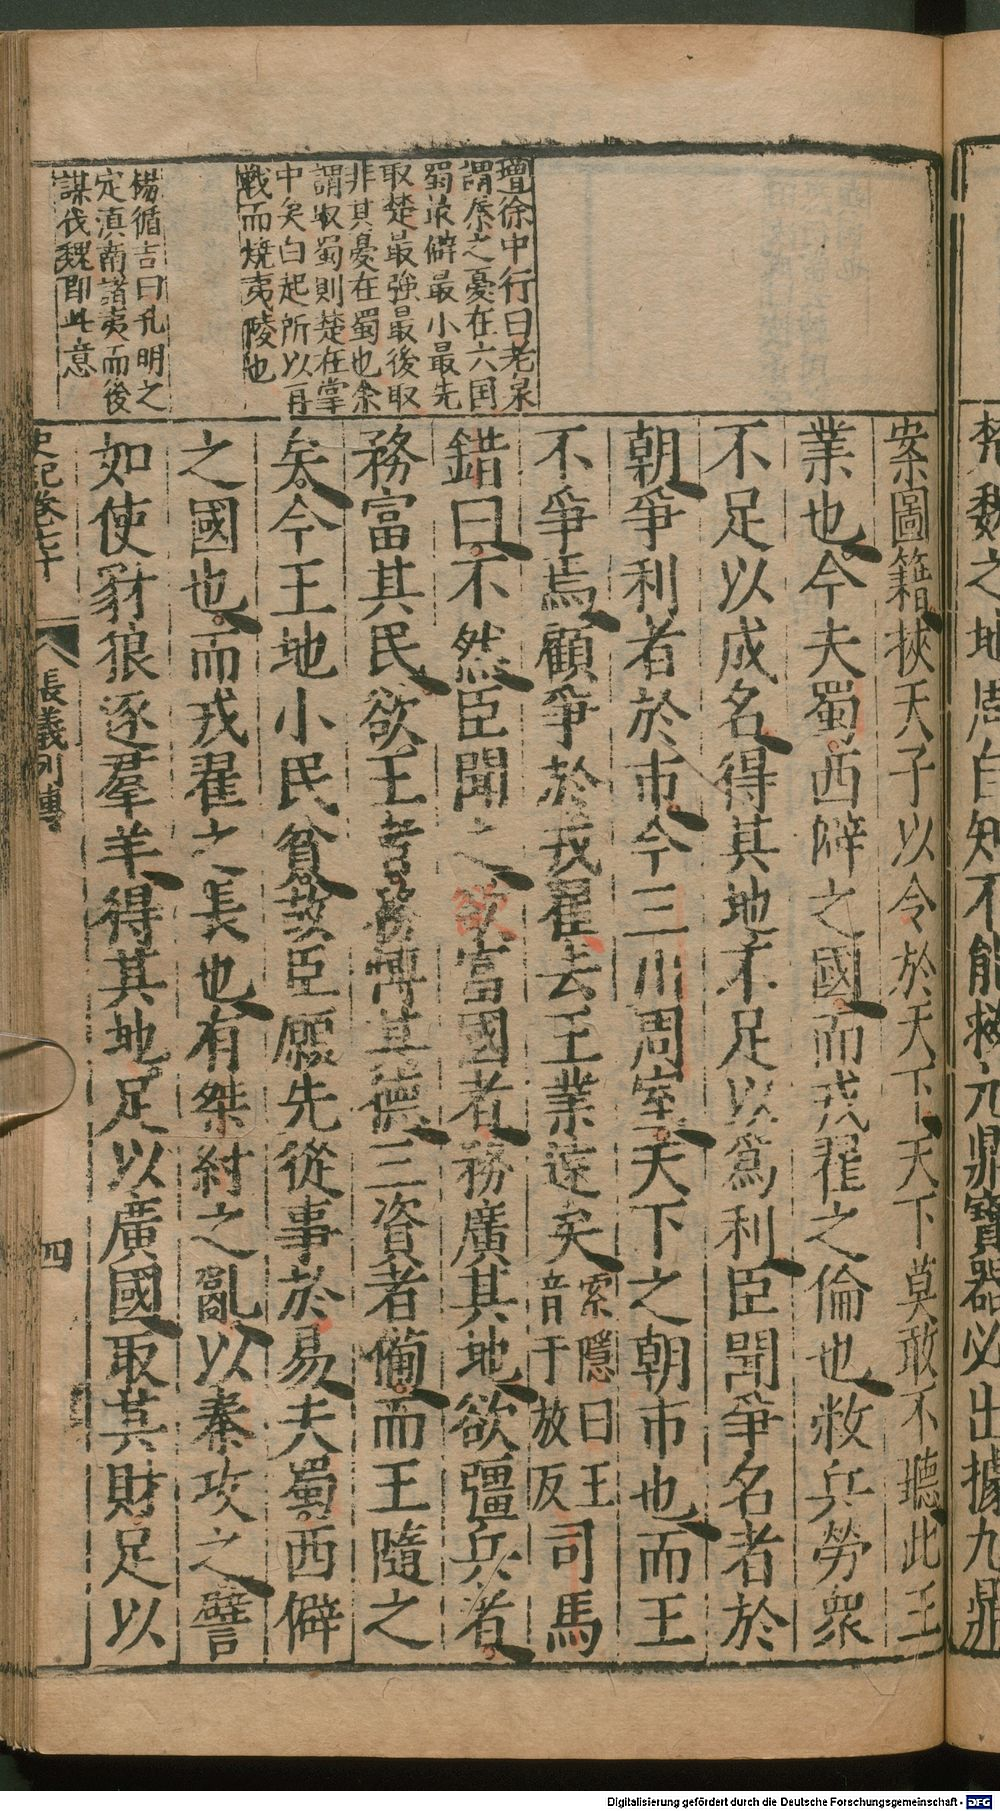 楚魏之地周自知不能救九鼎寶器必出據九鼎
案圖籍挾天子以令於天下天下莫敢不聽此王
業也今夫蜀西僻之國而戎翟之倫也敝兵勞衆
不足以成名得其地不足以爲利臣聞爭名者於
朝爭利者於市今三川周室天下之朝市也而王
不爭焉顧爭於戎翟去王業遠矣
索隱曰王
音于放反
司馬
錯曰不然臣聞之欲富國者務廣其地欲彊兵者
務富其民欲王者務博其德三資者備而王隨之
矣今王地小民貧故臣願先從事於易夫蜀西僻
之國也而戎翟之長也有桀紂之亂以秦攻之譬
如使豺狼逐羣羊得其地足以廣國取其財足以
增徐中行曰老泉
謂秦之憂在六国
蜀最僻最小最先
取楚最強最後取
非其憂在蜀也余
謂取蜀則楚在掌
中矣白起所以再
戰而燒夷陵也
楊循吉曰孔明之
定滇南諸夷而後
謀伐魏即此意
史記卷七十
張儀列傳
四
Digitalisierung gefördert durch die Deutsche Forschungsgemeinschaft - DFG